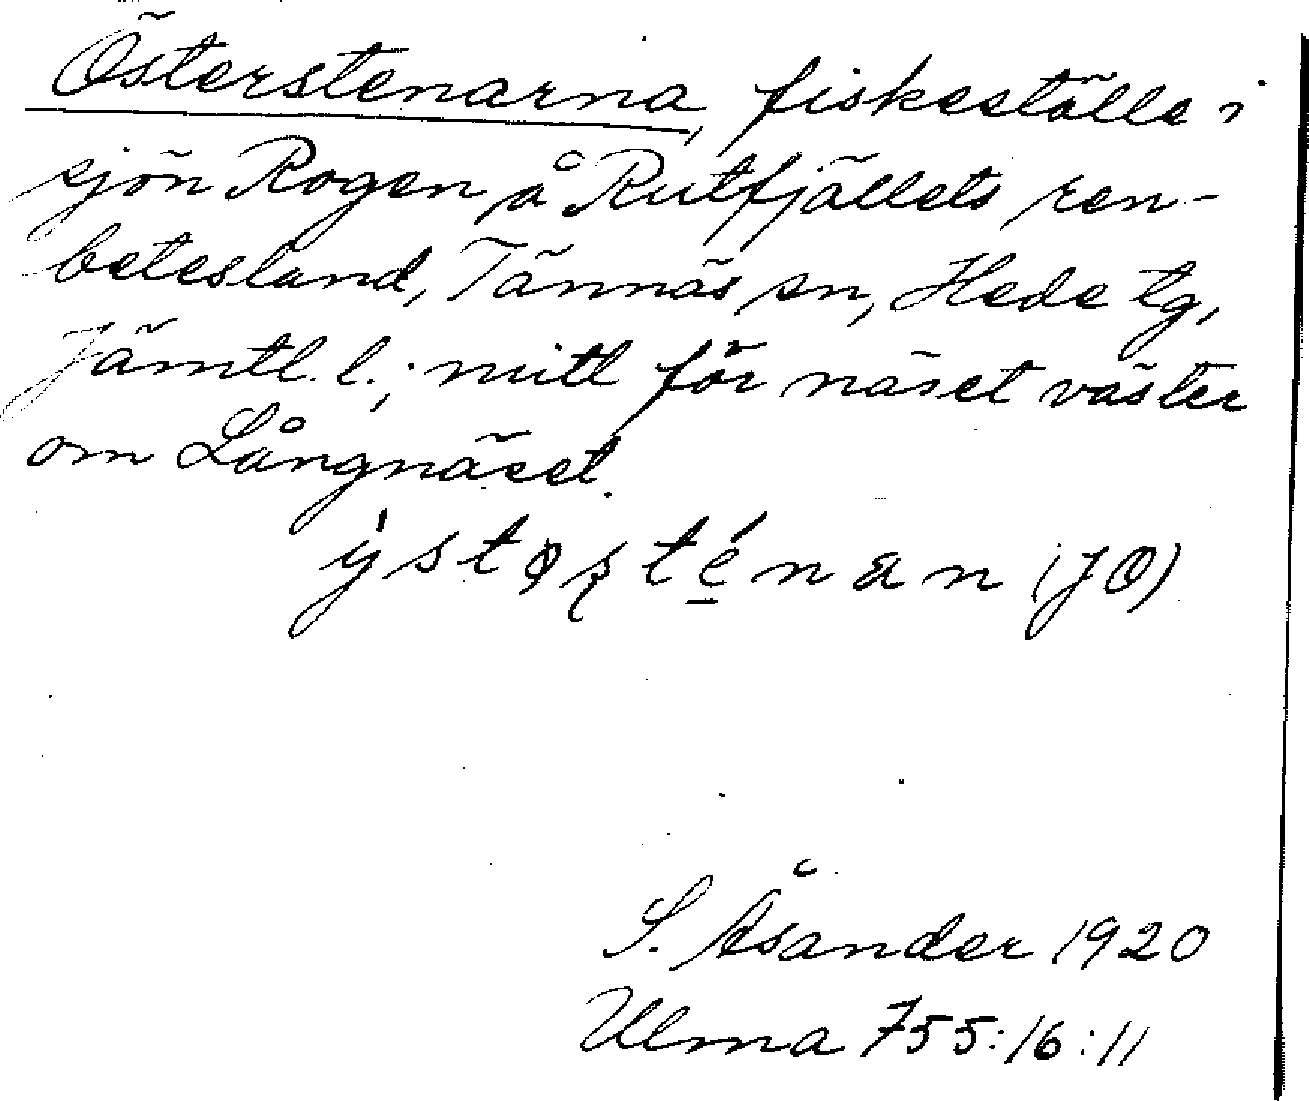 Österstenarna, fiskeställe i
sjön Rogen å Rutfjällets ren-
betesland, Tännäs sn, Hede tg,
Jämtl. l.; mitt för näset väster
om Långnäset.
(JO)
S. Åsander 1920
Ulma 755:16:11